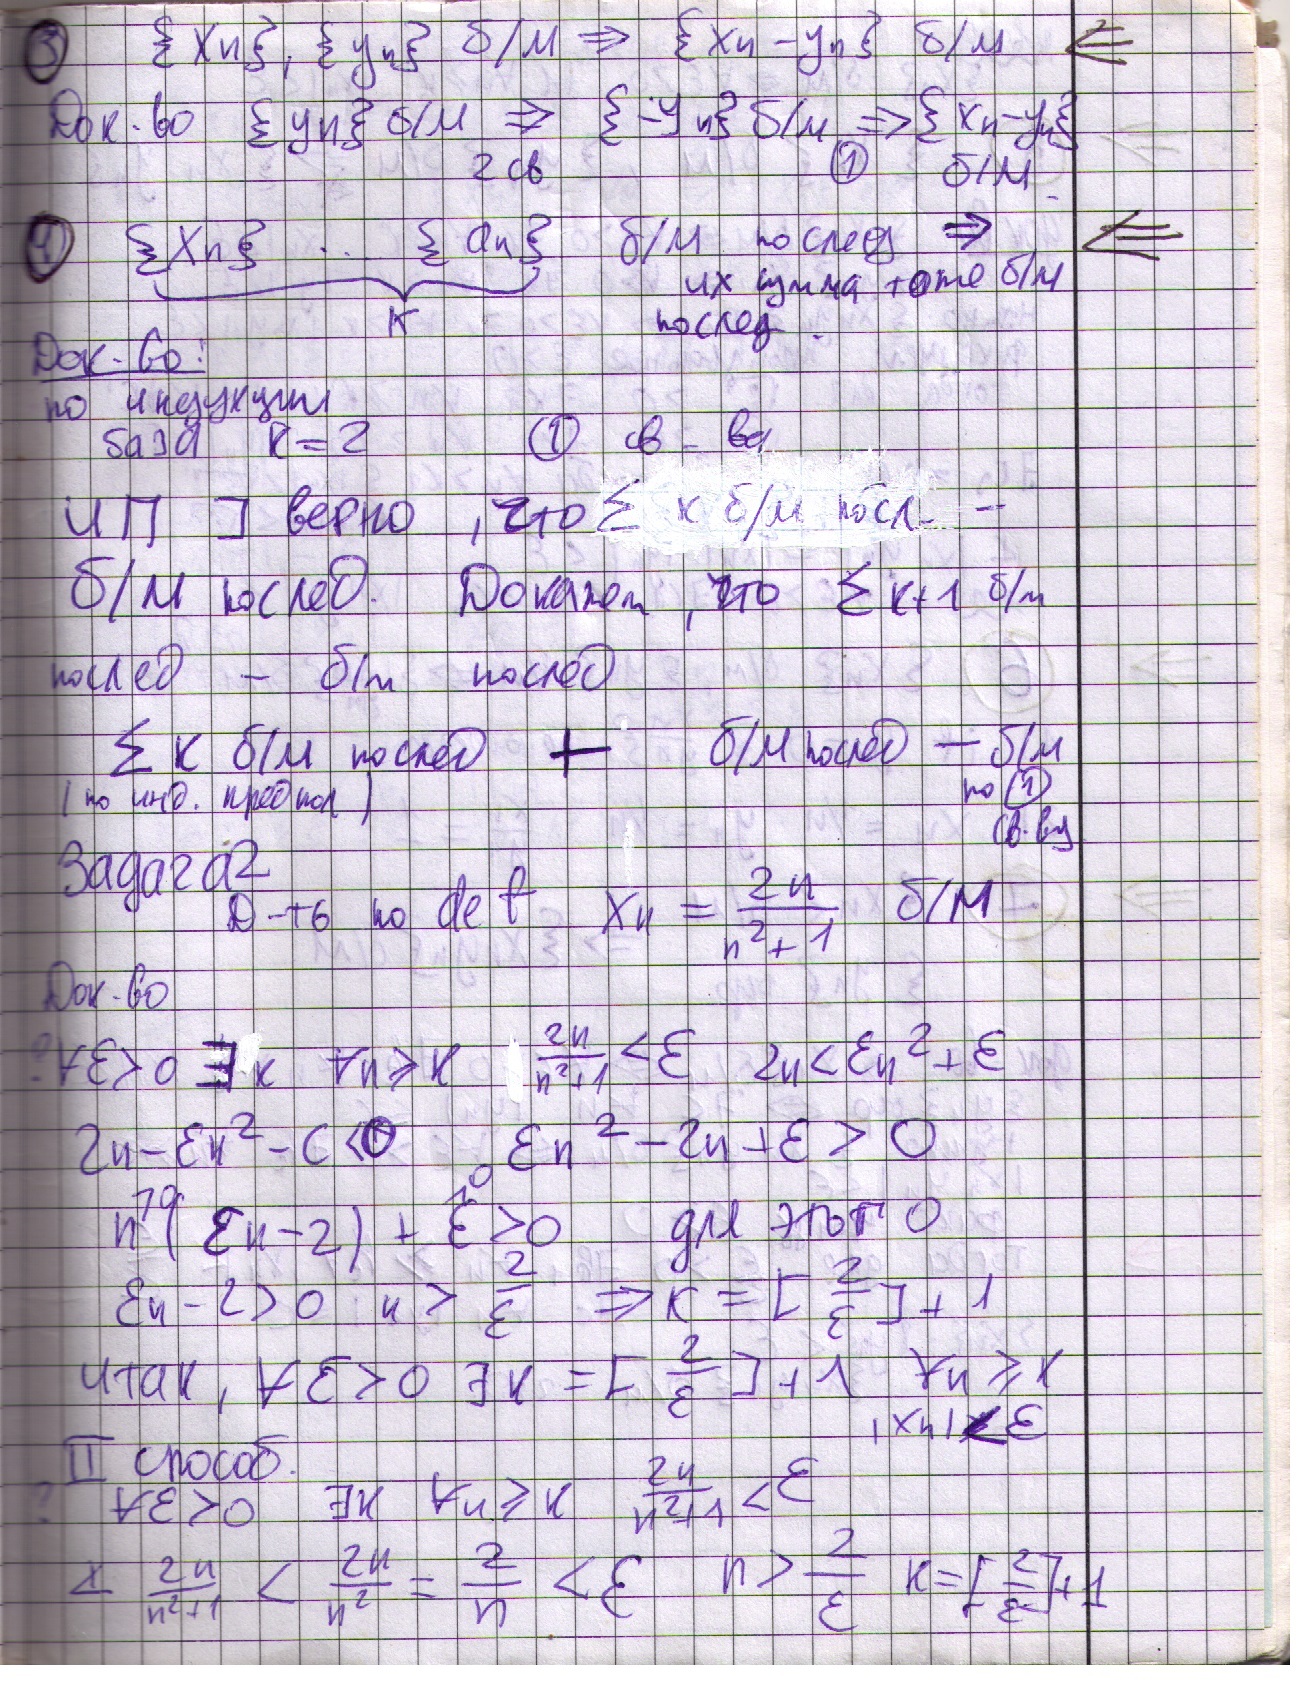 ③ {xn}, {yn} б/м ⇒ {xn − yn} б/м ⇐
Док-во {yn} б/м ⇒ {−yn} б/м ⇒ {xn−yn}
2 св ① б/м.
④ {xn} ... {an} б/м послед ⇒ ⇐
их сумма тоже б/м
K послед.
Док-во:
по индукции
база K=2 ① св-ва
ИП ] верно, что Σ к б/м посл. –
б/м послед. Докажем, что Σ к+1 б/м
послед – б/м послед
Σ к б/м послед + б/м послед – б/м
(по инд. предпол) по ①
св-ву
Задача 2
Д-ть по def xn = 2n/(n²+1) б/м
Док-во
? ∀ε>0 ∃k ∀n≥k 2n/(n²+1) < ε 2n<εn²+ε
2n−εn²−ε<0 εn²−2n+ε>0
n(εn−2)+ε>0 для этого
εn−2>0 n> 2/ε ⇒ k=[2/ε]+1
итак, ∀ε>0 ∃k=[2/ε]+1 ∀n≥k
|xn|<ε
II способ.
? ∀ε>0 ∃k ∀n≥k 2n/(n²+1) < ε
2n/(n²+1) < 2n/n² = 2/n < ε n> 2/ε k=[2/ε]+1